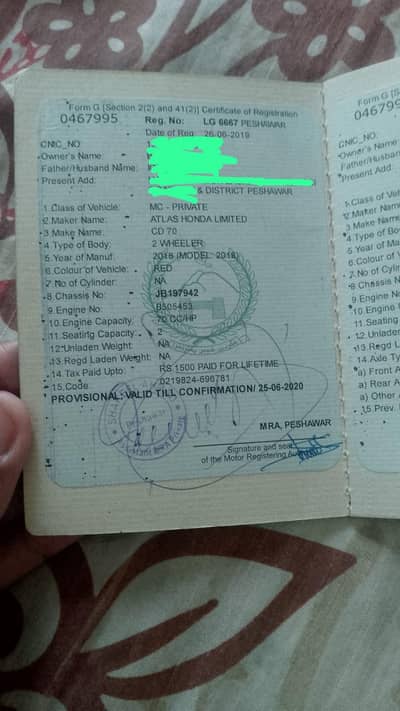 Form G [Section 2(2) and 41(2)] Certificate of Registration
0467995 Reg. No: LG 6667 PESHAWAR
Date of Reg 26-06-2019
CNIC_NO
Owner's Name :
Father/Husband Name:
Present Add:
& DISTRICT PESHAWAR
1. Class of Vehicle: MC - PRIVATE
2. Maker Name: ATLAS HONDA LIMITED
3. Make Name: CD 70
4. Type of Body: 2 WHEELER
5. Year of Manuf: 2018 (MODEL: 2018)
6. Colour of Vehicle: RED
7. No of Cylinder: NA
8. Chassis No: JB197942
9. Engine No: B305453
10. Engine Capacity: 70 CC/HP
11. Seating Capacity: 2
12. Unladen Weight: NA
13. Regd Laden Weight: NA
14. Tax Paid Upto: RS 1500 PAID FOR LIFETIME
15. Code: 0219824-696781
PROVISIONAL: VALID TILL CONFIRMATION/ 25-06-2020
MRA, PESHAWAR
Signature and seal
of the Motor Registering
Form G [Sec
046799
CNIC_NO:
Owner's Name
Father/Husband
Present Add:
1. Class of Vehic
2. Maker Name
3. Make Name
4. Type of Bo
5. Year of Man
6. Colour of V
7. No of Cylin
8. Chassis No
9. Engine No
10. Engine
11. Seating
12. Unladen
13. Regd L
14. Axle Ty
a) Front A
a) Rear A
a) Other
15. Prev.